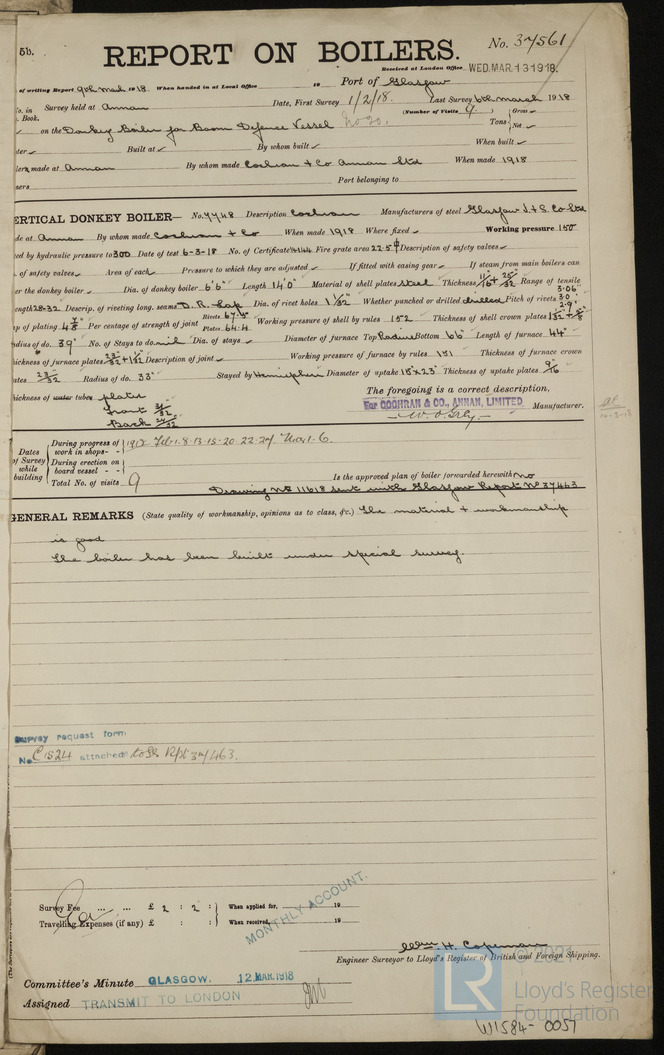 5b.
REPORT ON BOILERS.
No. 37561
Received at London Office WED. MAR. 13 1918.
of writing Report 9th March 1918. When handed in at Local Office 19 Port of Glasgow
No. in Survey held at Annan Date, First Survey 1/2/18. Last Survey 6th March 1918
Book. (Number of Visits 9.)
on the Donkey Boiler for Boom Defence Vessel No 20. Tons { Gross Net
Built at By whom built When built
made at Annan By whom made Cochran & Co Annan Ltd When made 1918
Port belonging to
VERTICAL DONKEY BOILER— No. 7748 Description Cochran Manufacturers of steel Glasgow I. & S. Co Ltd
Made at Annan By whom made Cochran & Co When made 1918 Where fixed Working pressure 150
ed by hydraulic pressure to 300 Date of test 6-3-18 No. of Certificate Fire grate area 22.5 Description of safety valves
of safety valves Area of each Pressure to which they are adjusted If fitted with easing gear If steam from main boilers can
er the donkey boiler Dia. of donkey boiler 6'6" Length 14'0" Material of shell plates steel Thickness 11/16 + 25/32 Range of tensile
ength 28-32 Descrip. of riveting long. seams D. R. Lap Dia. of rivet holes 1 1/32 Whether punched or drilled drilled Pitch of rivets 3.06 3.0 2.9
p of plating 4 5/8 Per centage of strength of joint Rivets 67.5 Plates 64.4 Working pressure of shell by rules 152 Thickness of shell crown plates
adius of do. 39" No. of Stays to do. nil Dia. of stays Diameter of furnace Top Radius Bottom 66" Length of furnace 44"
hickness of furnace plates 23/32 + 1 1/32 Description of joint Working pressure of furnace by rules 151 Thickness of furnace crown
ates 23/32 Radius of do. 33" Stayed by Hemisphere Diameter of uptake 18" x 23" Thickness of uptake plates 9/16
hickness of water tubes plates
Front 31/32
Back
The foregoing is a correct description,
For COCHRAN & CO., ANNAN, LIMITED Manufacturer.
Dates of Survey while building
During progress of work in shops - - 1918 Feb. 1. 8. 13. 15. 20. 22. 27. Mar. 1. 6.
During erection on board vessel - -
Total No. of visits 9
Is the approved plan of boiler forwarded herewith no
Drawing No 11618 sent with Glasgow Report No 37463
GENERAL REMARKS (State quality of workmanship, opinions as to class, &c.) The material & workmanship
is good
The boiler has been built under special survey.
Survey request form
No. C 1524 attached to Gls Rpt 37463.
Survey Fee ... ... £ 2 : 2 : When applied for, 19
Travelling Expenses (if any) £ : : When received, 19
MONTHLY ACCOUNT.
Wm. H. Copeman
Engineer Surveyor to Lloyd's Register of British and Foreign Shipping.
Committee's Minute GLASGOW. 12 MAR. 1918
Assigned TRANSMIT TO LONDON
© 2021
LR
Lloyd's Register
Foundation
W1584-0057